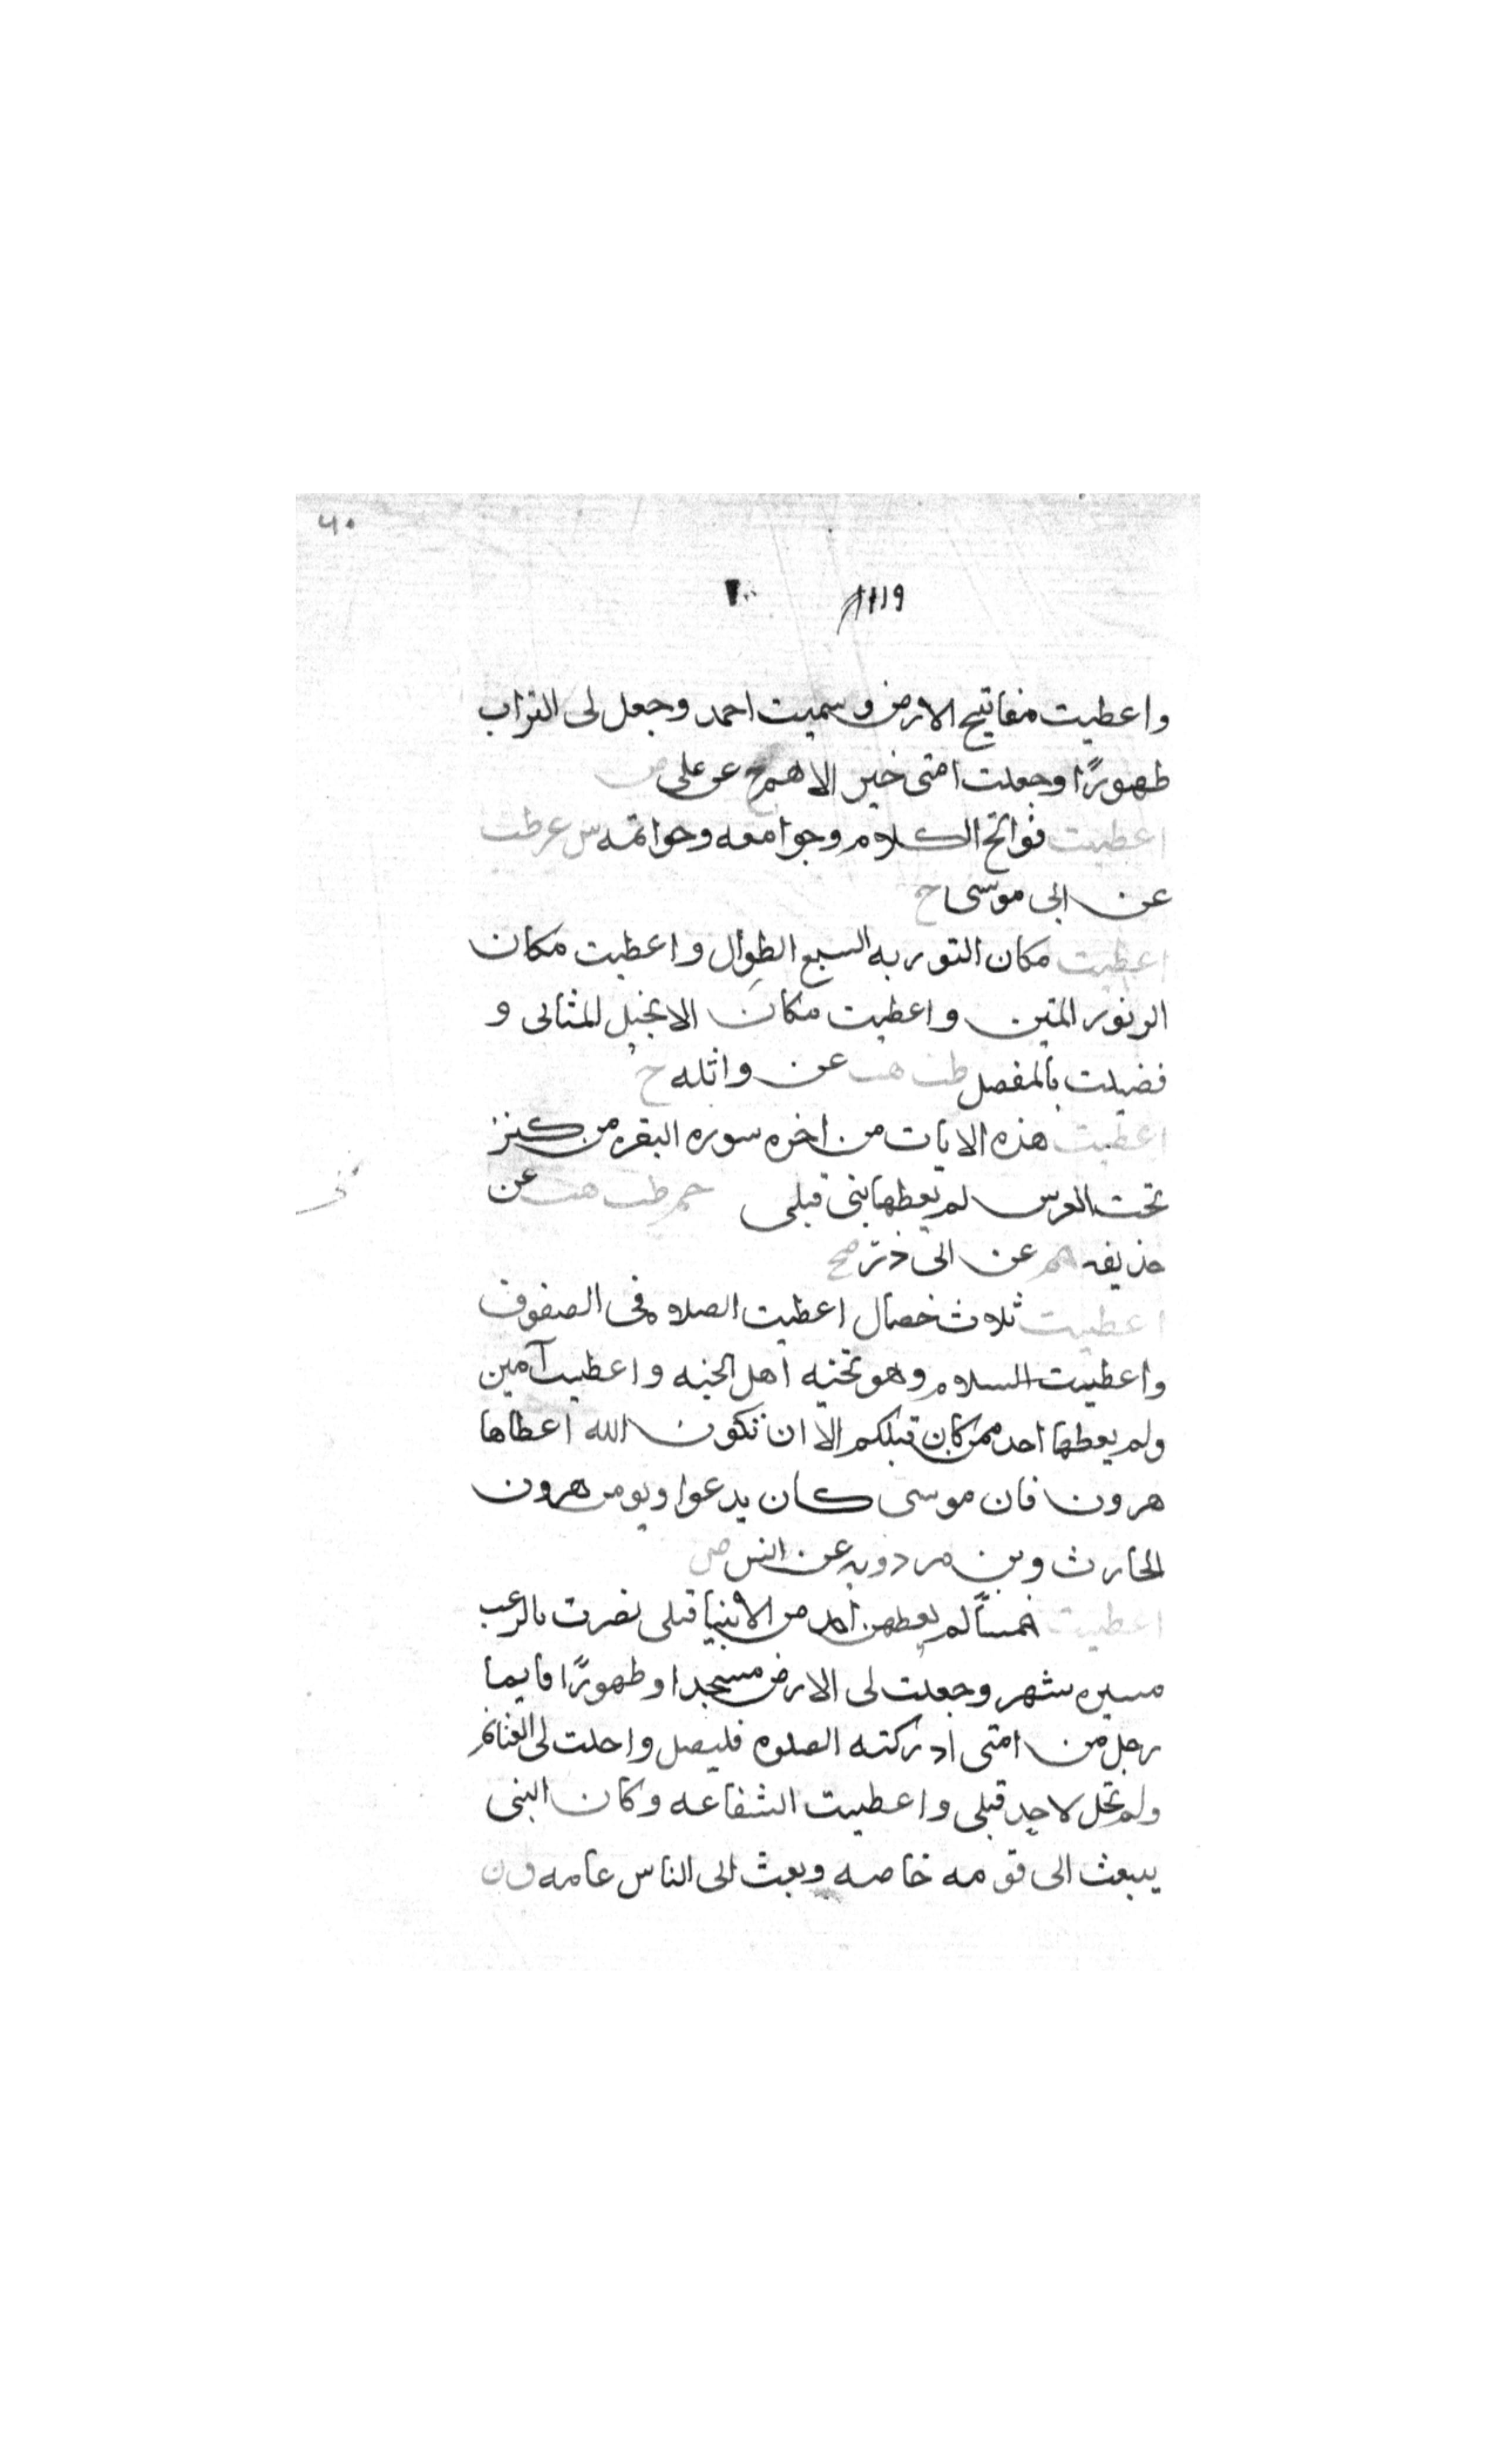 ٦٠
١١١٩
واعطيت مفاتيح الارض وسميت احمد وجعل لى التراب
طهورًا وجعلت امتى خير الامم عن على
اعطيت فواتح الكلام وجوامعه وخواتمه ش ع طب
عن ابى موسى ح
اعطيت مكان التوريه السبع الطوال واعطيت مكان
الزبور المئين واعطيت مكان الانجيل المثانى و
فضيلت بالمفصل طب هب عن واثله ح
اعطيت هذه الايات من اخره سوره البقره من كنز
تحت العرش لم يعطها نبى قبلى حم طب هب عن
حذيفه حم عن ابى ذر صح
اعطيت ثلاث خصال اعطيت الصلاه فى الصفوف
واعطيت السلام وهو تحيه اهل الجنه واعطيت آمين
ولم يعطها احد ممن كان قبلكم الا ان تكون الله اعطاها
هرون فان موسى كان يدعوا ويومن هرون
الحارث وبن مردويه عن انس ض
اعطيت خمسًا لم يعطهن احد من الانبيا قبلى نصرت بالرعب
مسيره شهر وجعلت لى الارض مسجدا وطهورًا فايما
رجل من امتى ادركته الصلوه فليصل واحلت لى الغنائم
ولم تحل لاحد قبلى واعطيت الشفاعه وكان النبى
يبعث الى قومه خاصه وبعثت الى الناس عامه ق ن